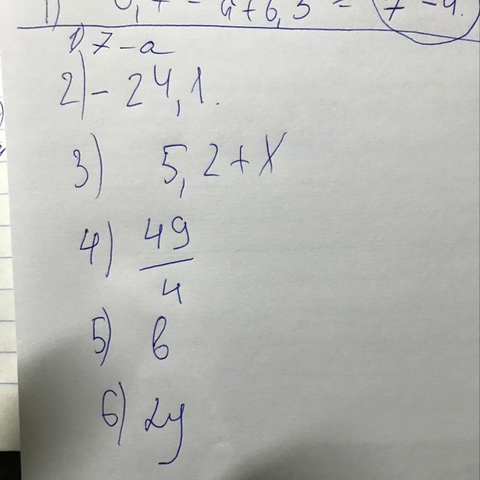 1) - a + 6,5 = 7 - a.
1) 7 - a
2) - 24,1.
3) 5,2 + x
4) 49/4
5) в
6) 2y